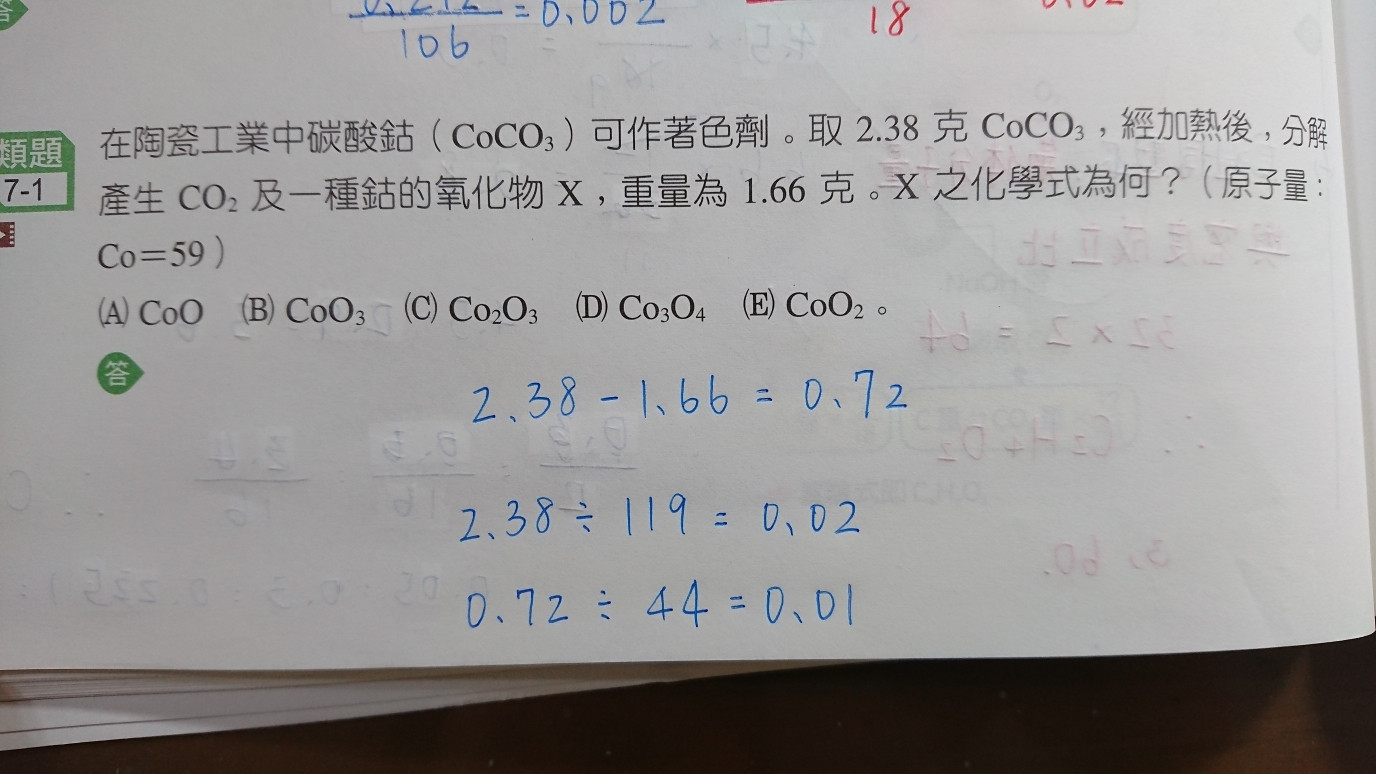 = 0.002
106
18
類題
7-1
在陶瓷工業中碳酸鈷（CoCO₃）可作著色劑。取 2.38 克 CoCO₃，經加熱後，分解
產生 CO₂ 及一種鈷的氧化物 X，重量為 1.66 克。X 之化學式為何？（原子量：
Co＝59）
(A) CoO (B) CoO₃ (C) Co₂O₃ (D) Co₃O₄ (E) CoO₂。
答
2.38 - 1.66 = 0.72
2.38 ÷ 119 = 0.02
0.72 ÷ 44 = 0.01